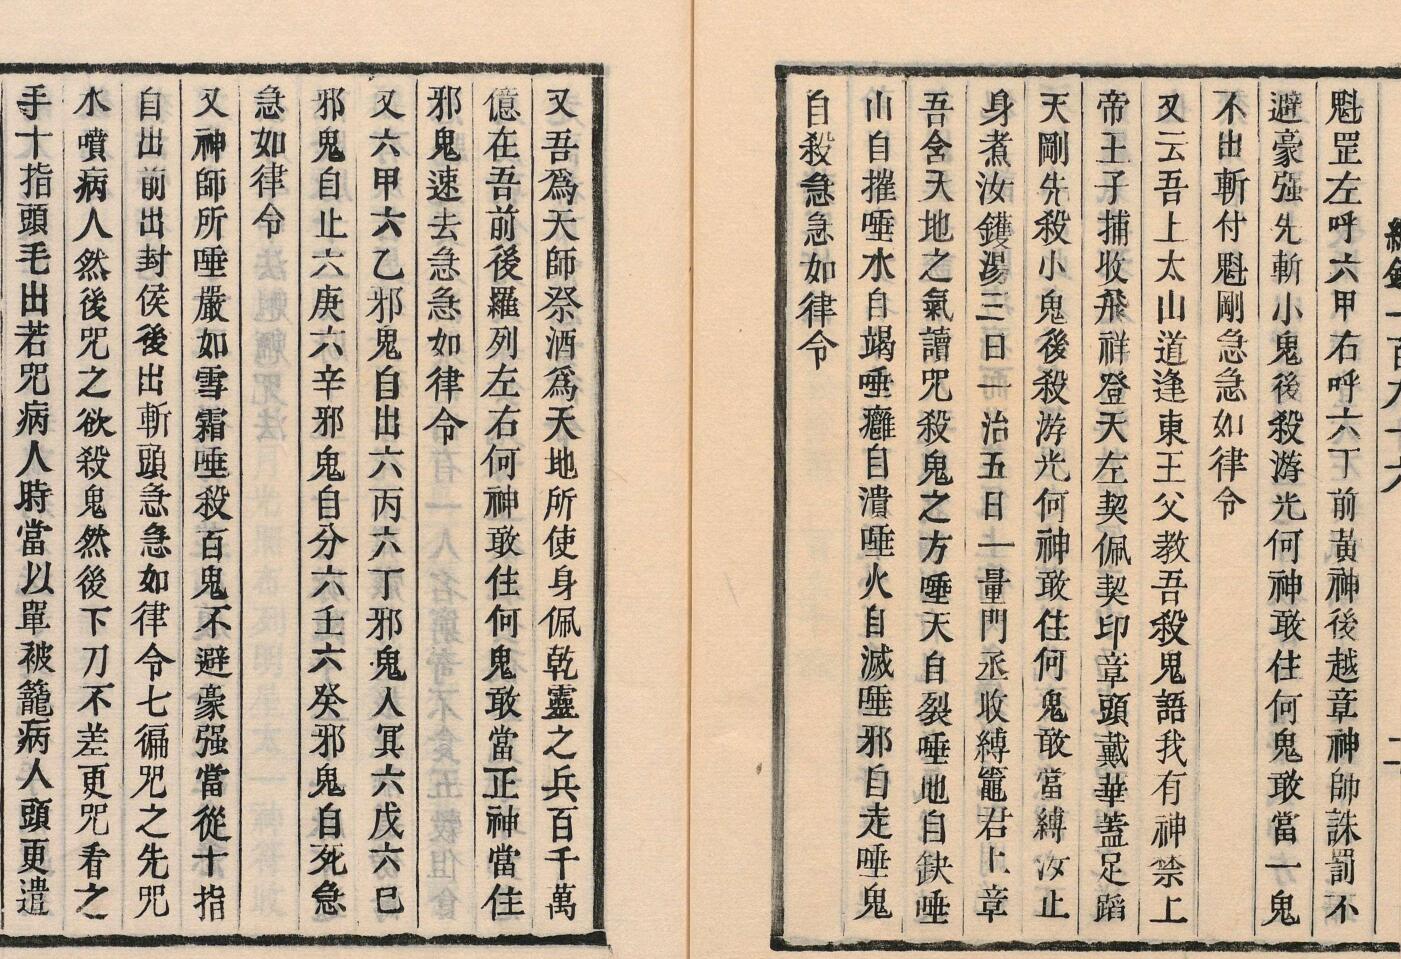 總錄一百九十六
二
魁罡左呼六甲右呼六丁前黃神後越章神師誅罰不
避豪强先斬小鬼後殺游光何神敢住何鬼敢當一鬼
不出斬付魁剛急急如律令
又云吾上太山道逢東王父教吾殺鬼語我有神禁上
帝王子捕收飛祥登天左契佩契印章頭戴華蓋足蹈
天剛先殺小鬼後殺游光何神敢住何鬼敢當縛汝止
身煮汝鑊湯三日一治五日一量門丞收縛竈君上章
吾含天地之氣讀咒殺鬼之方唾天自裂唾地自缺唾
山自摧唾水自竭唾癰自潰唾火自滅唾邪自走唾鬼
自殺急急如律令
又吾爲天師祭酒爲天地所使身佩乾靈之兵百千萬
億在吾前後羅列左右何神敢住何鬼敢當正神當住
邪鬼速去急急如律令
又六甲六乙邪鬼自出六丙六丁邪鬼入冥六戊六巳
邪鬼自止六庚六辛邪鬼自分六壬六癸邪鬼自死急
急如律令
又神師所唾嚴如雪霜唾殺百鬼不避豪强當從十指
自出前出封侯後出斬頭急急如律令七徧咒之先咒
水噴病人然後咒之欲殺鬼然後下刀不差更咒看之
手十指頭毛出若咒病人時當以單被籠病人頭更遣